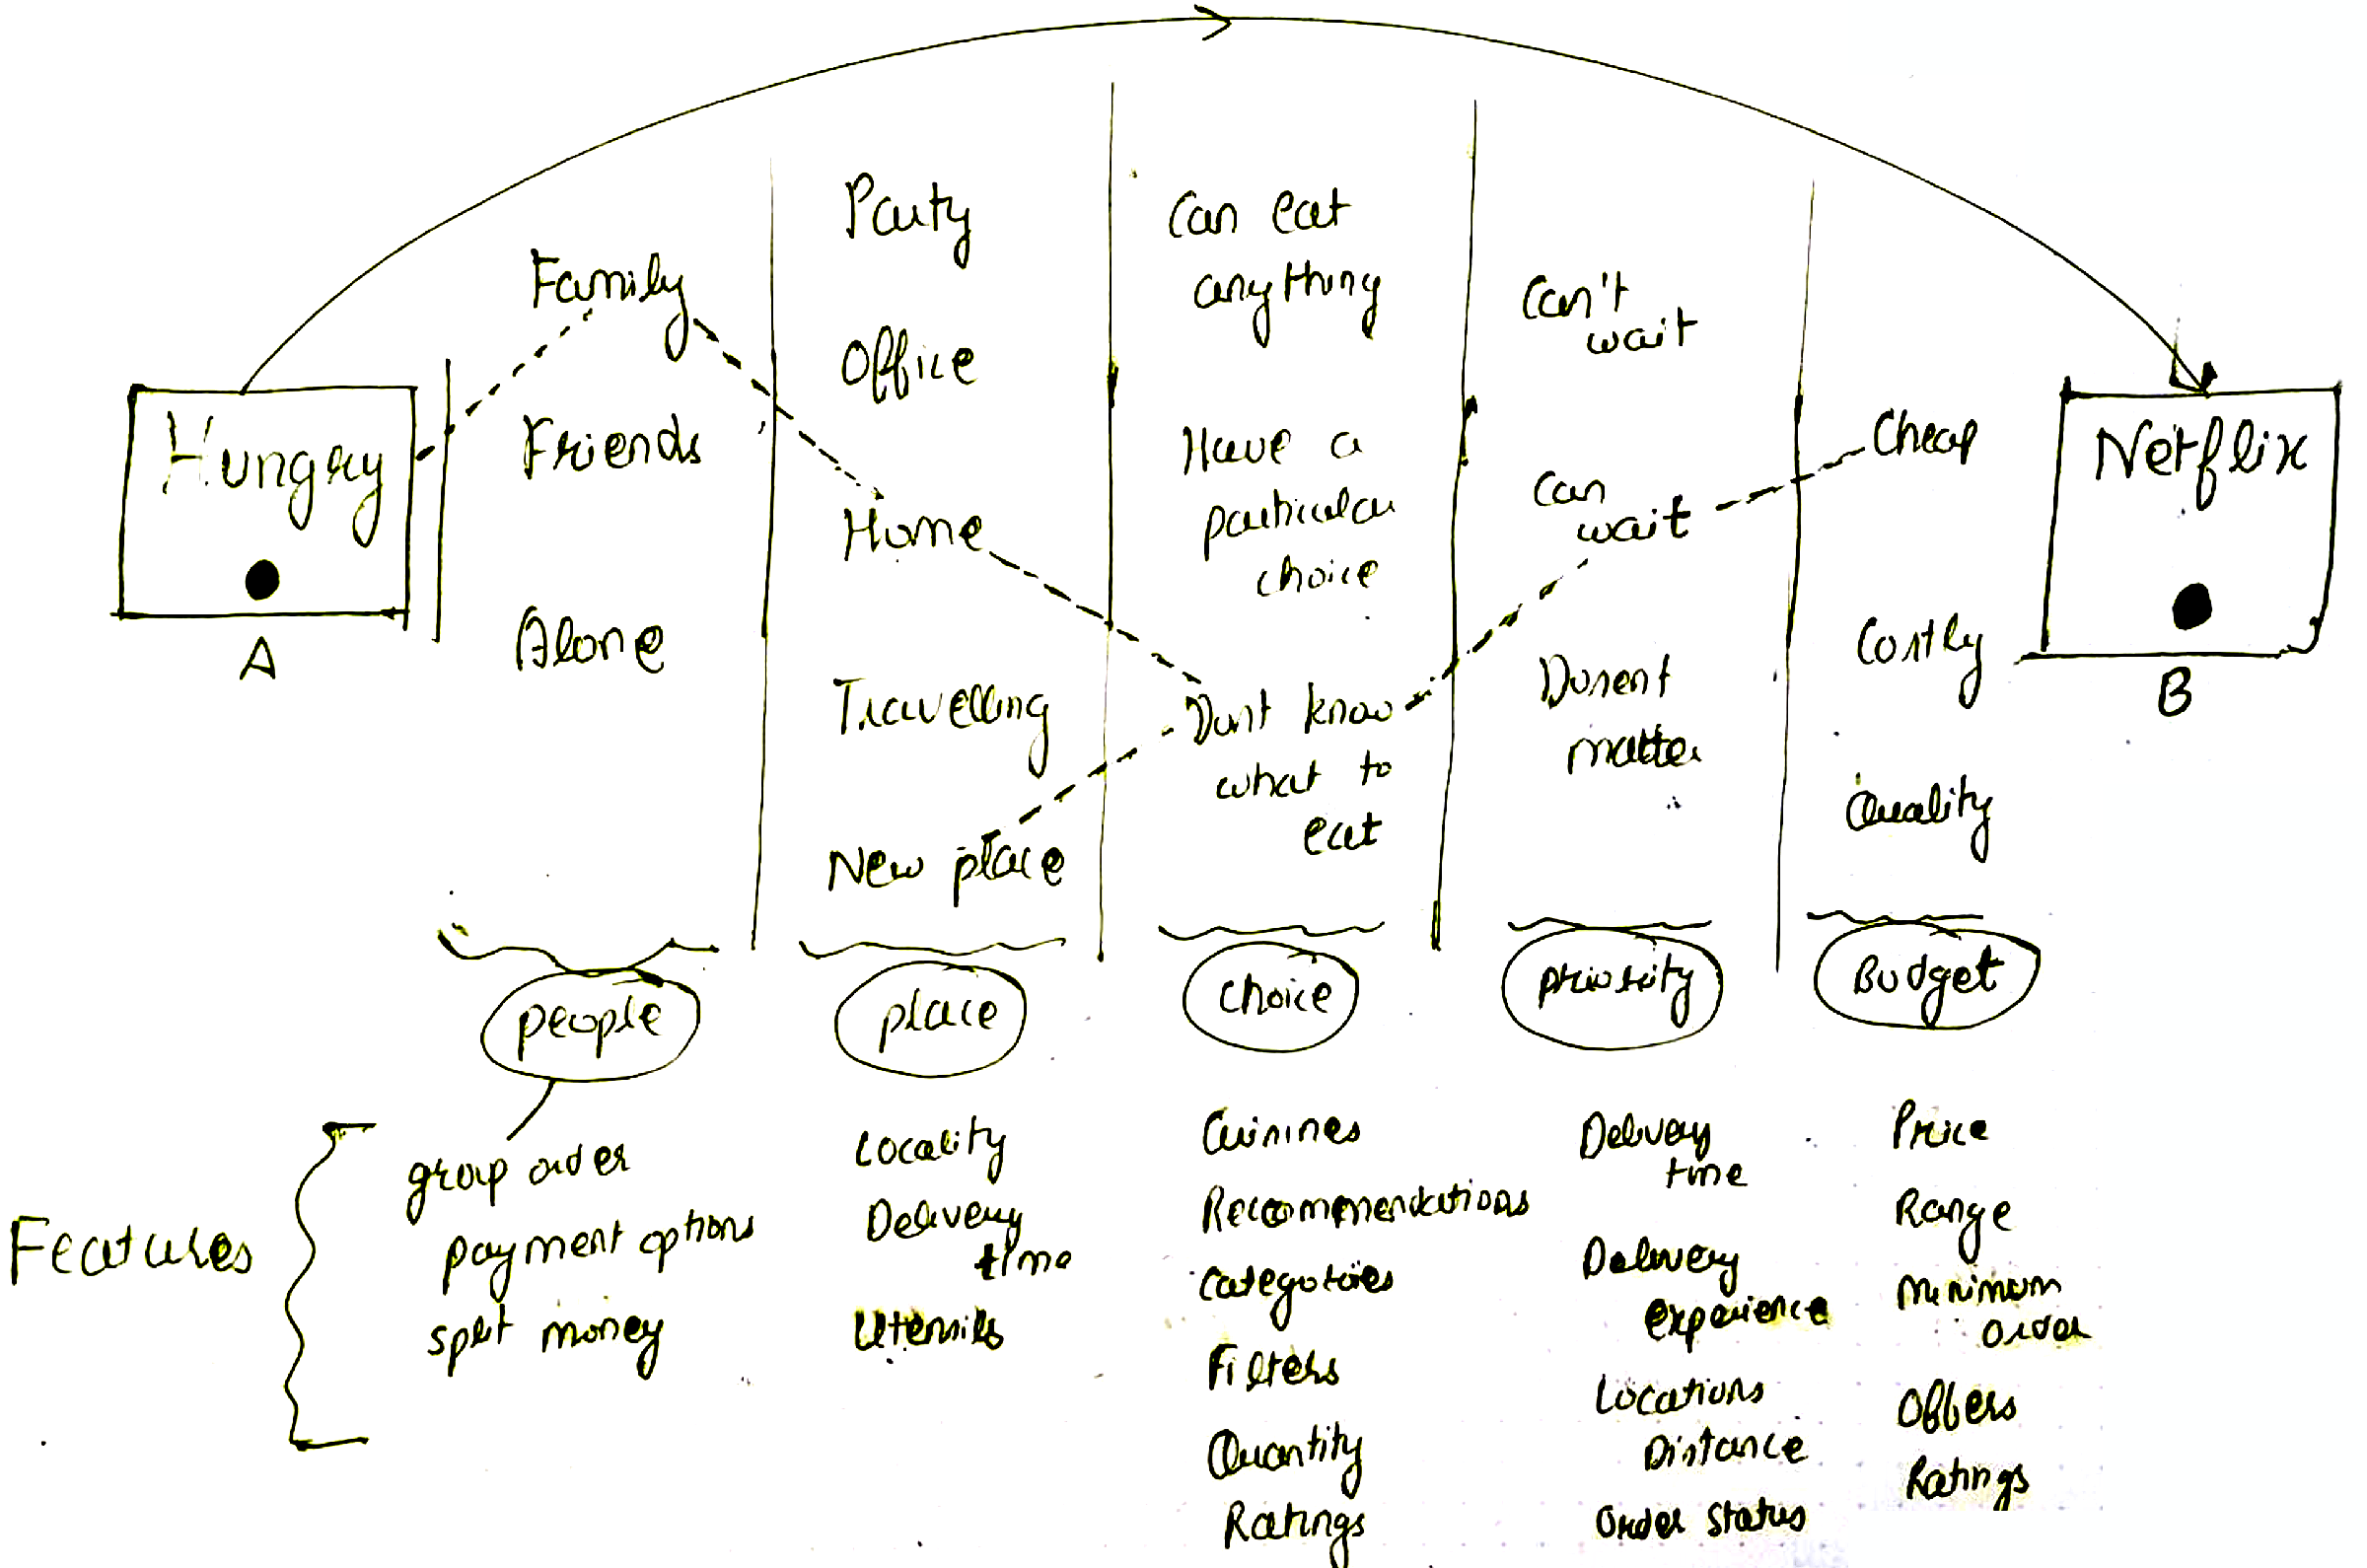 Hungry
A
Family
Friends
Alone
Party
Office
Home
Travelling
New place
Can eat
anything
Have a
particular
choice
Dont know
what to
eat
Can't
wait
Can
wait
Dosent
matter
Cheap
Costly
Quality
Netflix
B
people
place
choice
priority
Budget
Features
group order
payment options
split money
Locality
Delivery
time
Utensils
Cuisines
Recommendations
Categories
Filters
Quantity
Ratings
Delivery
time
Delivery
experience
Locations
Distance
Order Status
Price
Range
Minimum
order
Offers
Ratings